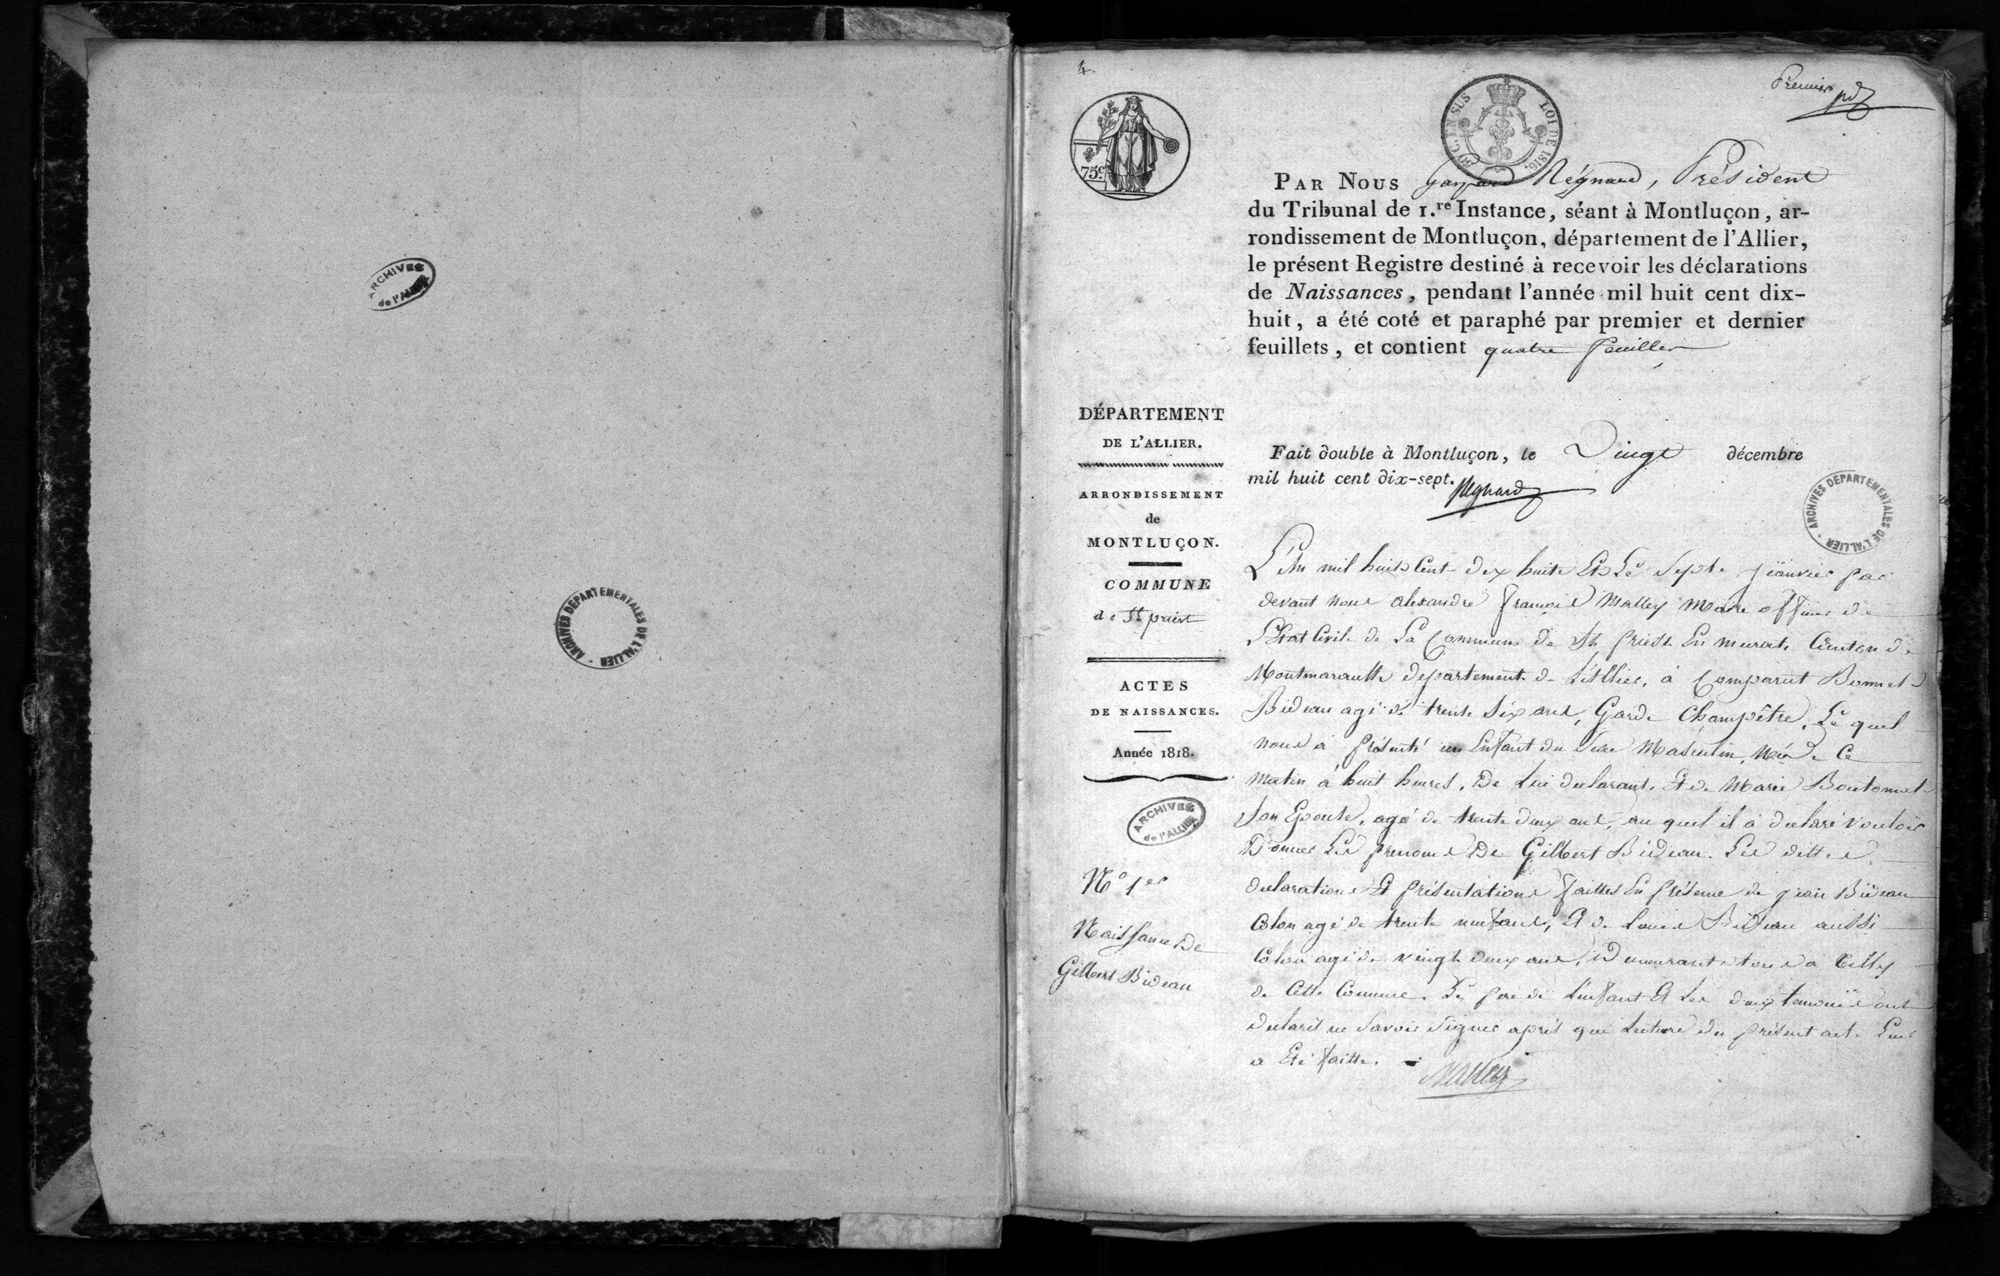 ARCHIVES
de l'ALLIER
ARCHIVES DEPARTEMENTALES DE L'ALLIER
4.
75c.
30 C. EN SUS
LOI DE 1816.
Premier
PAR NOUS Gaspard Régnard, Président
du Tribunal de 1.re Instance, séant à Montluçon, ar-
rondissement de Montluçon, département de l'Allier,
le présent Registre destiné à recevoir les déclarations
de Naissances, pendant l'année mil huit cent dix-
huit, a été coté et paraphé par premier et dernier
feuillets, et contient quatre feuillets
Fait double à Montluçon, le Vingt décembre
mil huit cent dix-sept.
Régnard
ARCHIVES DEPARTEMENTALES DE L'ALLIER
DÉPARTEMENT
DE L'ALLIER.
ARRONDISSEMENT
de
MONTLUÇON.
COMMUNE
de St priest
ACTES
DE NAISSANCES.
Année 1818.
ARCHIVES
de l'ALLIER
N° 1er
Naissance De
Gilbert Bideau
L'An mil huit Cent dix huite Et Le Sept janvier par
devant nous alexandre françois Malley Maire officier de
L'Etat Civile de La Commune de St priest En murat, Canton de
Montmaraultt departement de L'allier, à Comparut Bonnet
Bideau agé de trente Six ans, Garde Champêtre, Le quel
nous à présenté un Enfant du Sexe Masculin, Né de Ce
Matin à huit heures, De Lui declarant, Et de Marie Boutonnet
Son Epouse, agé de trente deux ans, au quel il à declaré Vouloir
Donner Les prenoms De Gilbert Bideau. Les dittes
declarations Et présentations faittes En présence de jean Bideau
Colon agé de trente neuf ans, Et de Louis Bideau aussi
Colon agé de vingt deux ans, Demeurant tous à
de Cette Commune. Le pere de L'enfant Et Les deux temoins ont
declaré ne Savoir Signer après que Lecture du présent acte Leur
a Eté faitte.
Malley